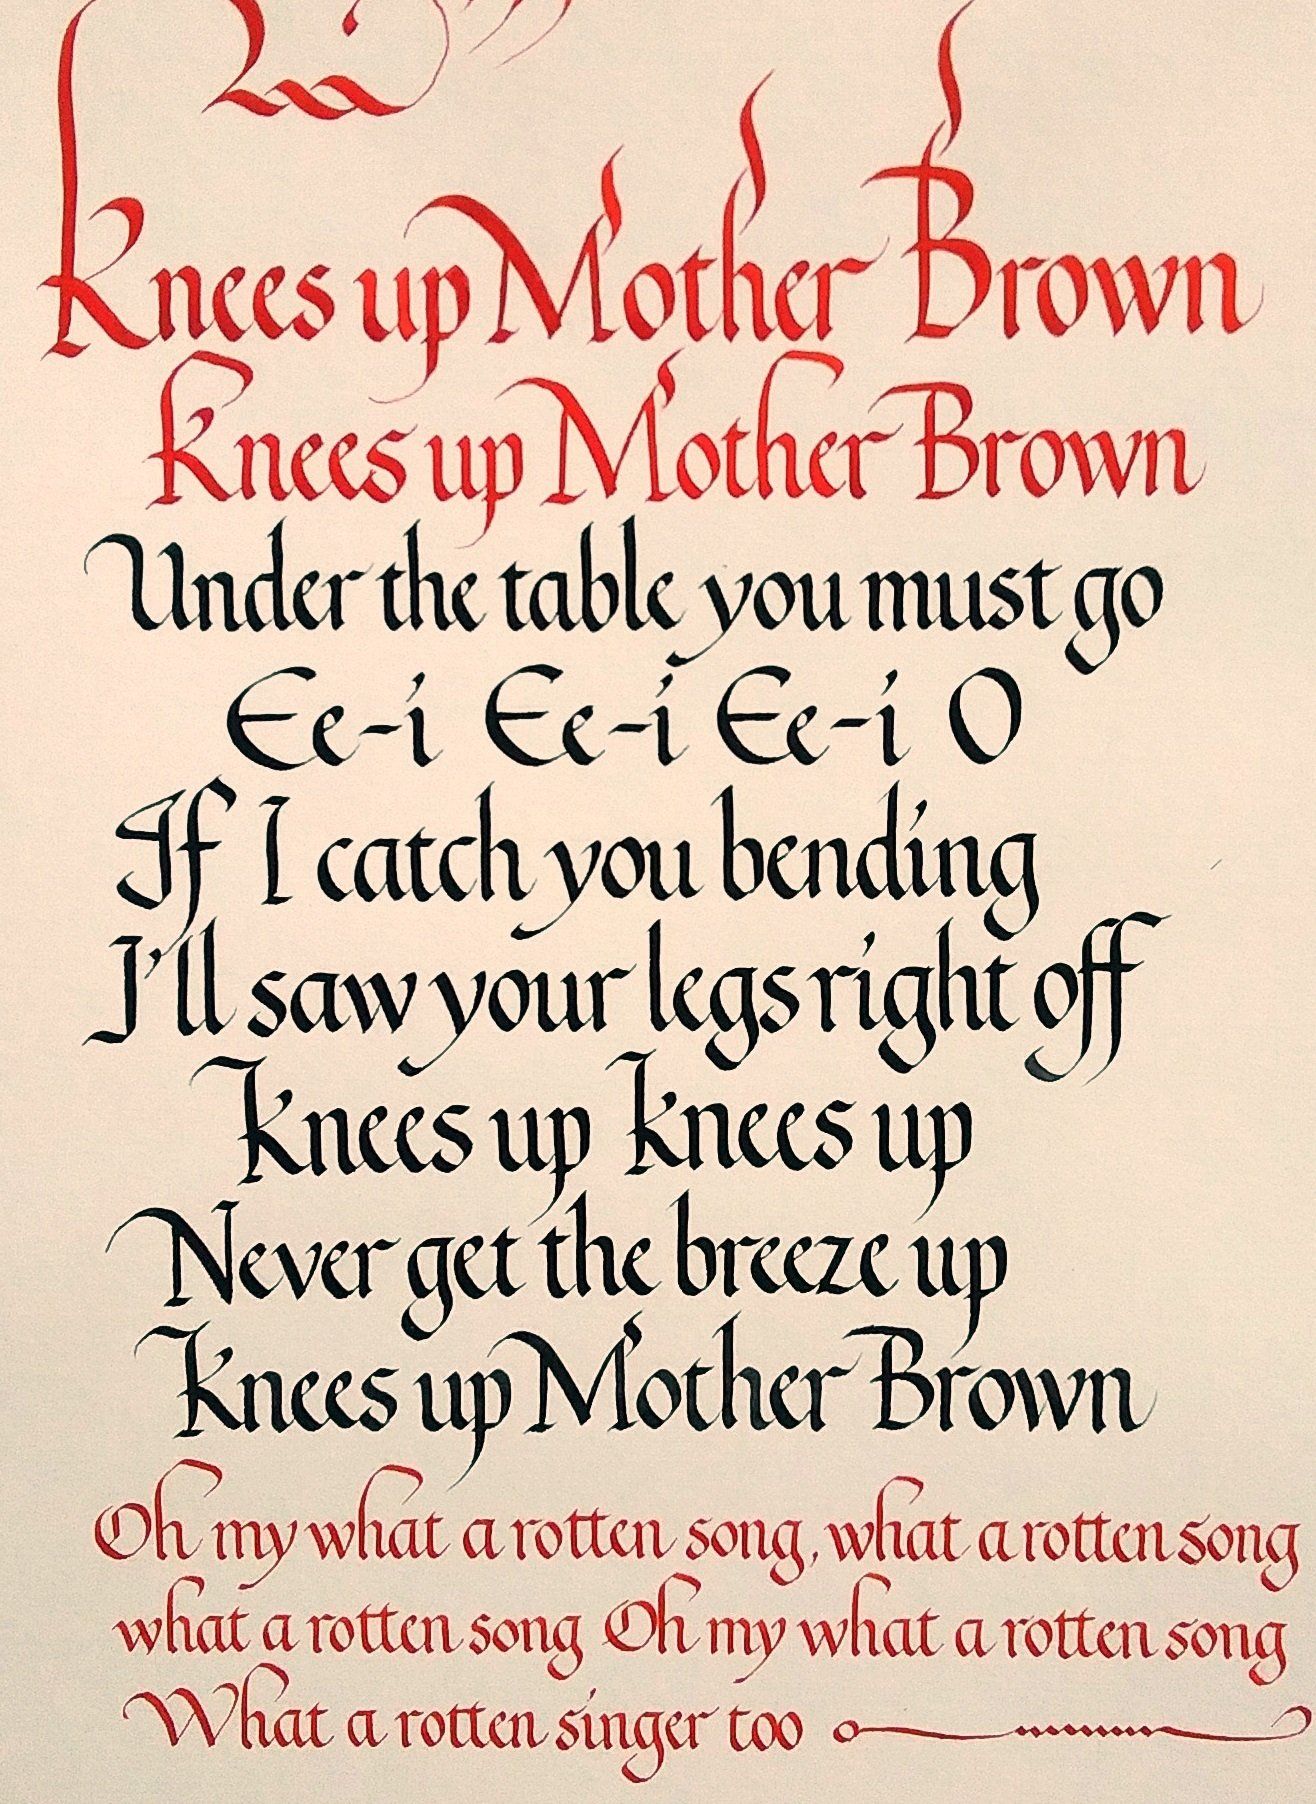 Knees up Mother Brown
Knees up Mother Brown
Under the table you must go
Ee-i Ee-i Ee-i O
If I catch you bending
I'll saw your legs right off
Knees up knees up
Never get the breeze up
Knees up Mother Brown
Oh my what a rotten song, what a rotten song
what a rotten song Oh my what a rotten song
What a rotten singer too